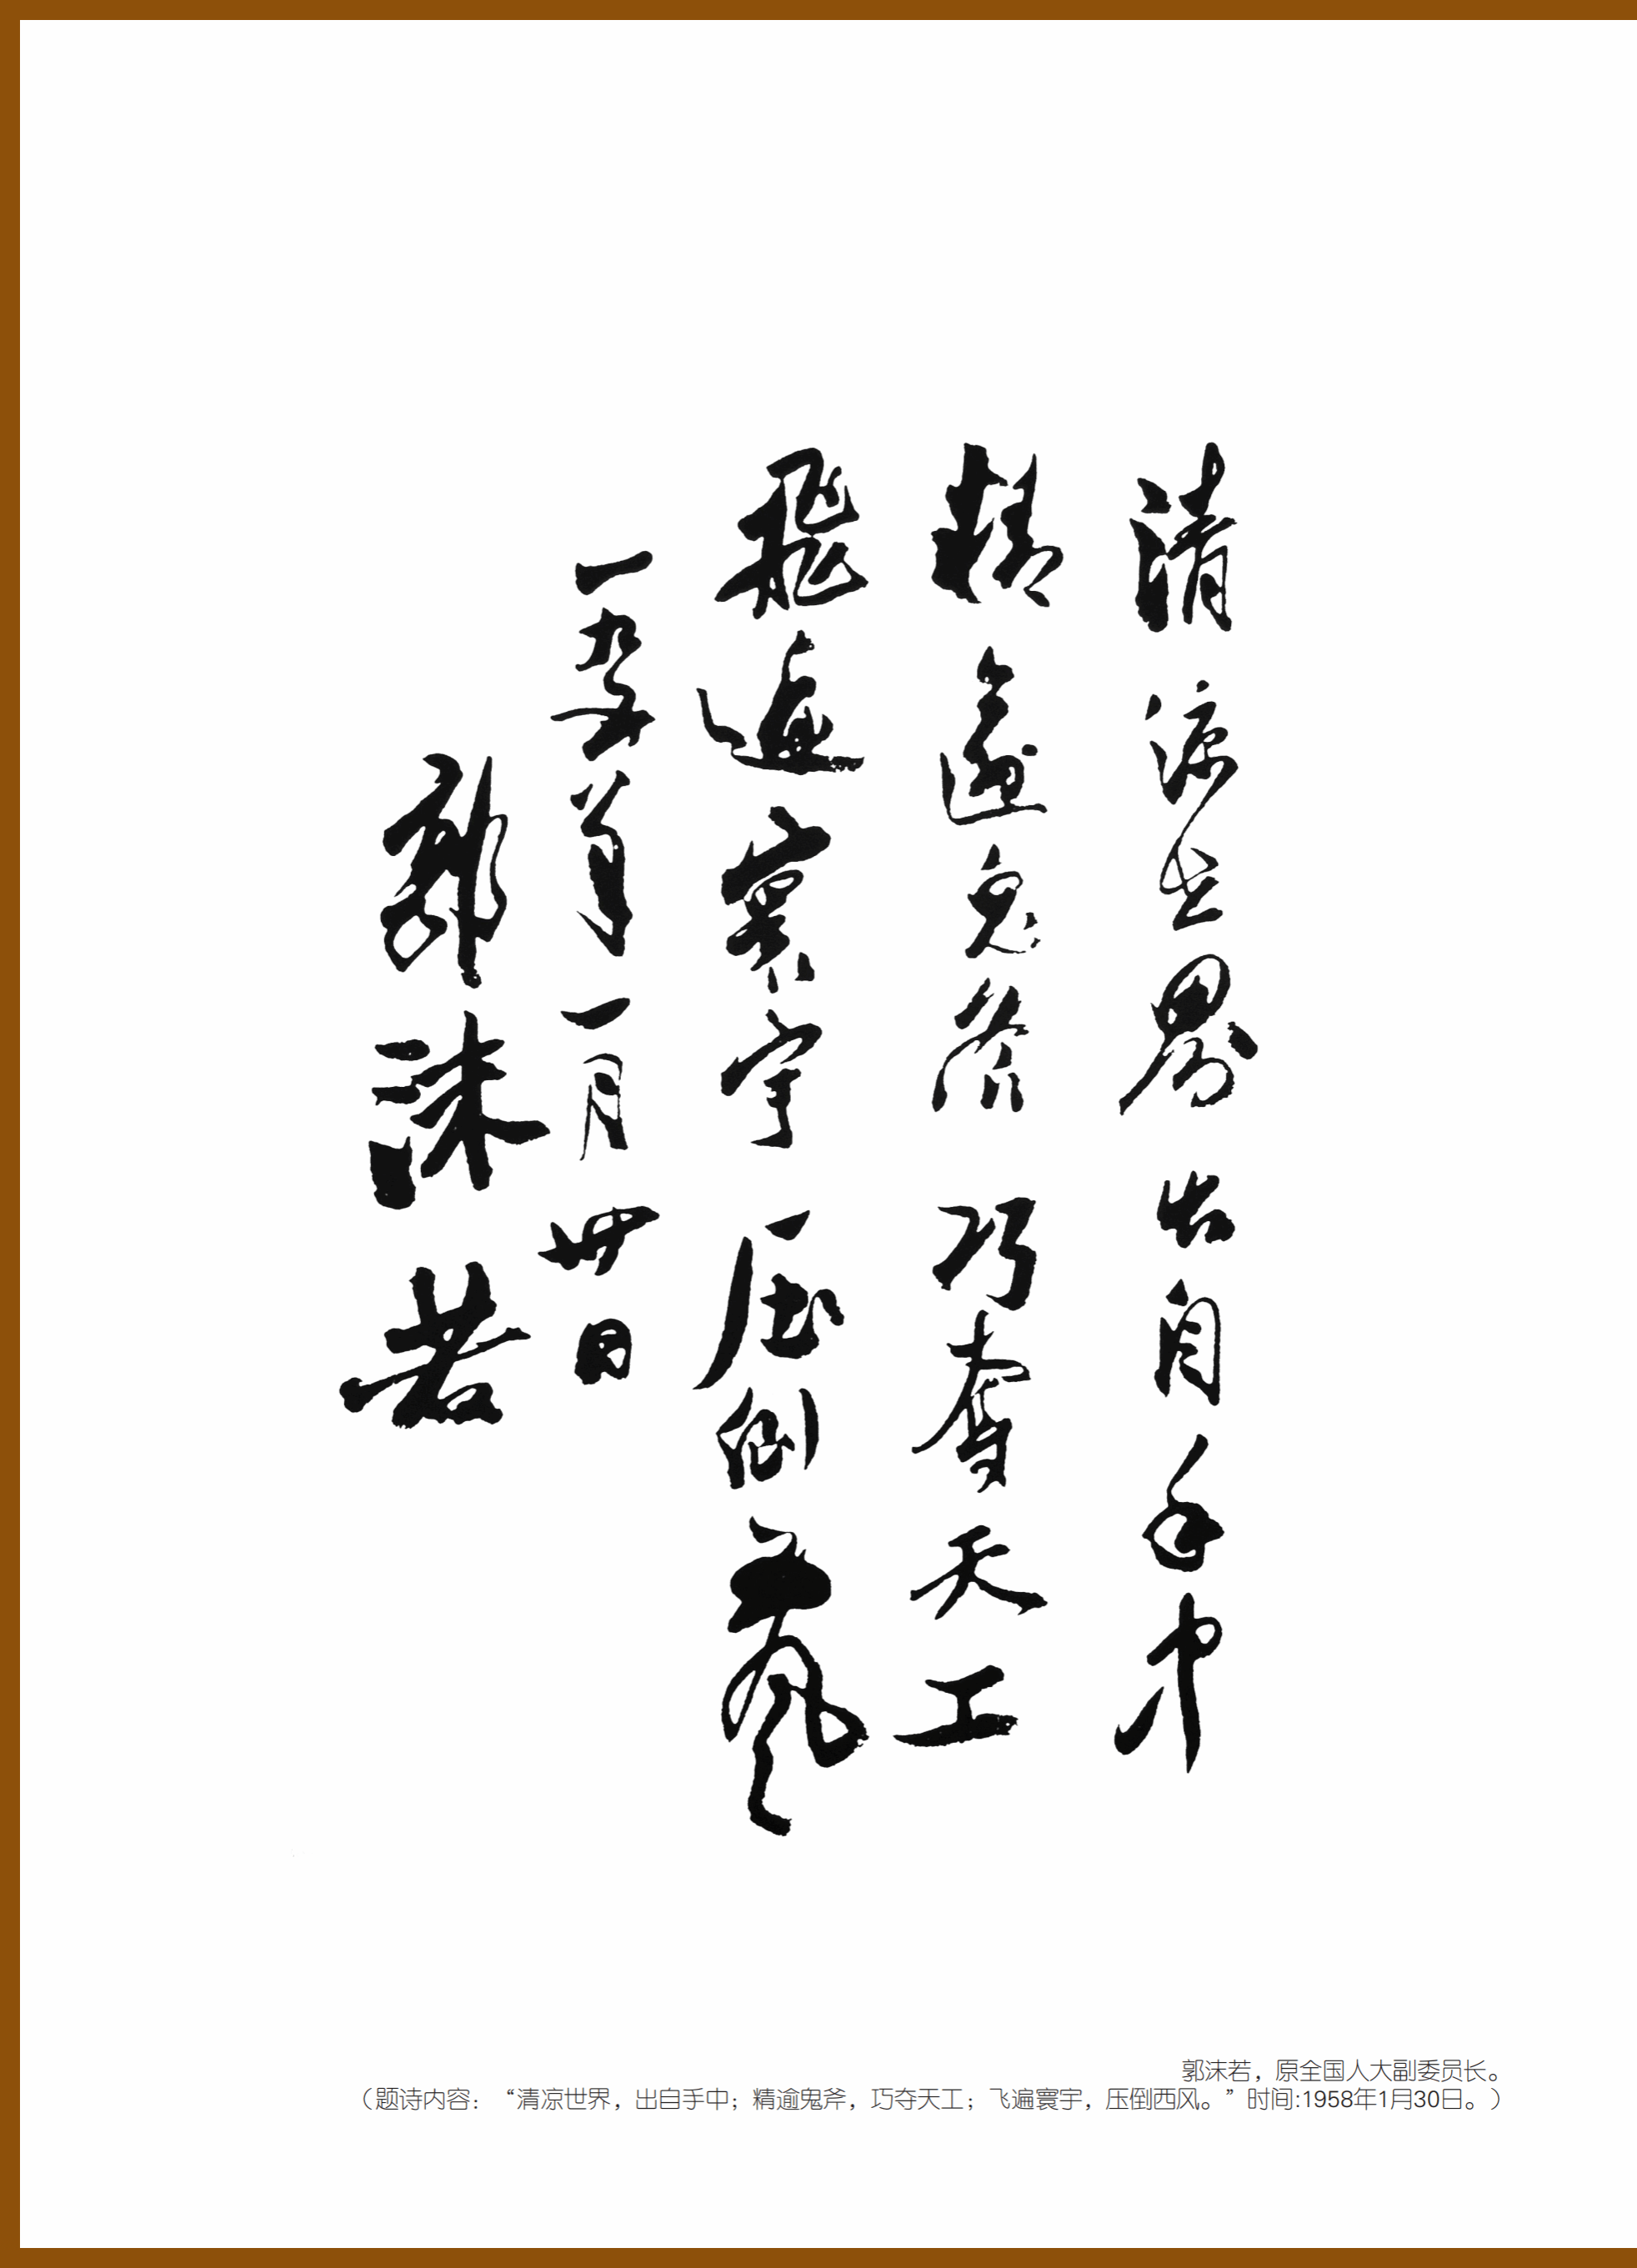 清凉世界出自手中
精逾鬼斧巧夺天工
飛遍寰宇压倒西風
一九五八年一月卅日
郭沫若
郭沫若，原全国人大副委员长。
（题诗内容：“清凉世界，出自手中；精逾鬼斧，巧夺天工；飞遍寰宇，压倒西风。”时间:1958年1月30日。）